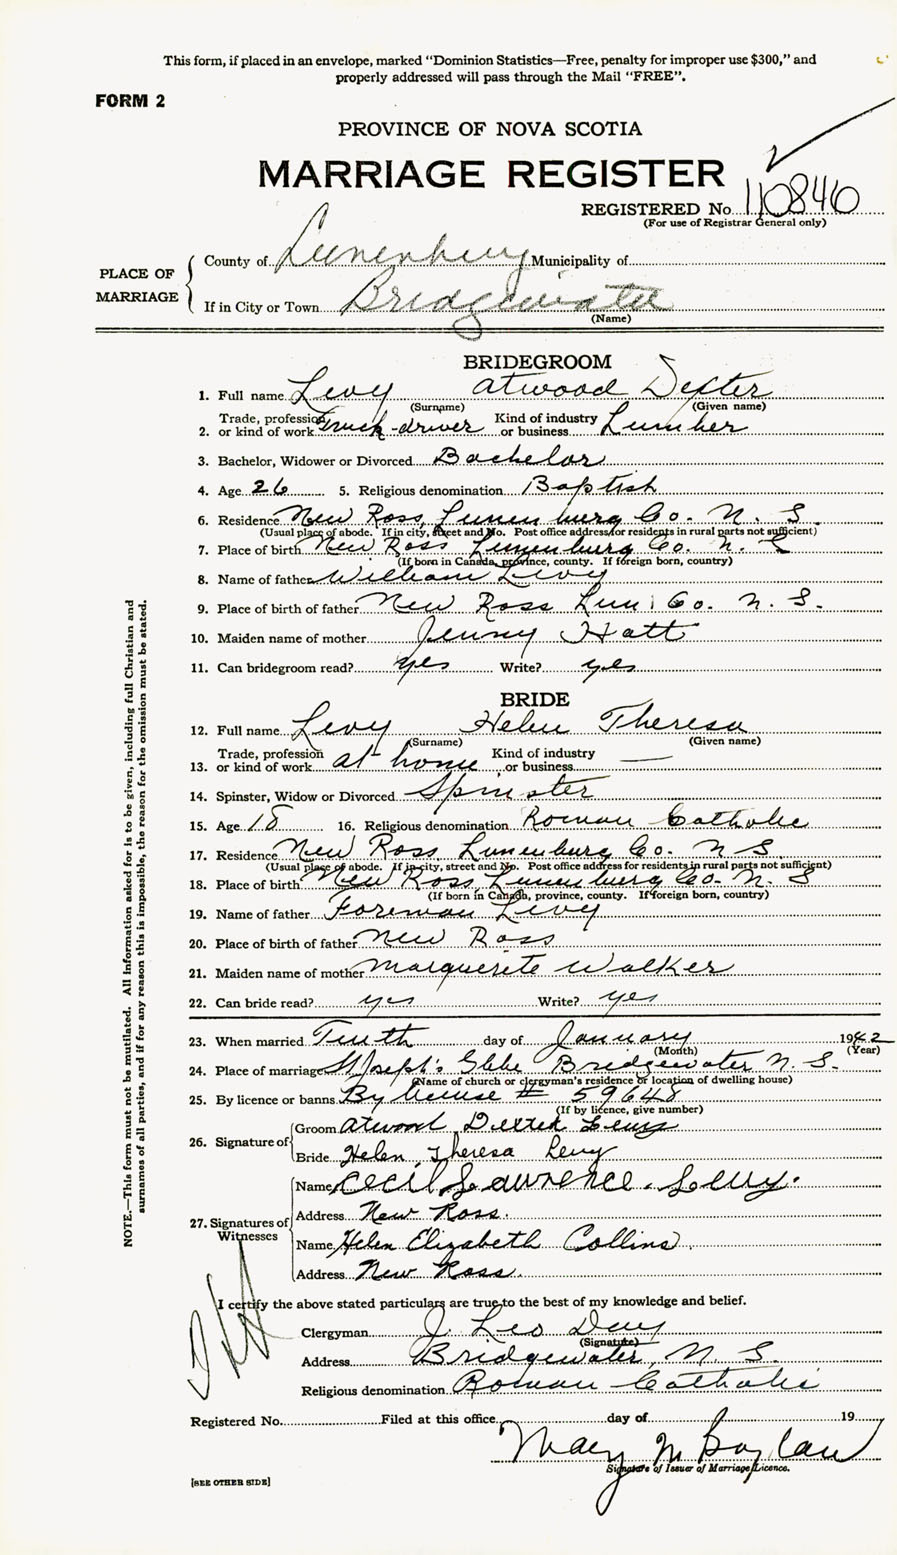 This form, if placed in an envelope, marked “Dominion Statistics—Free, penalty for improper use $300,” and
properly addressed will pass through the Mail “FREE”.
FORM 2
PROVINCE OF NOVA SCOTIA
MARRIAGE REGISTER
REGISTERED No. 110846
(For use of Registrar General only)
PLACE OF MARRIAGE
County of Lunenburg Municipality of
If in City or Town Bridgewater
(Name)
BRIDEGROOM
1. Full name Levy Atwood Dexter
(Surname) (Given name)
Trade, profession Kind of industry
2. or kind of work truck-driver or business Lumber
3. Bachelor, Widower or Divorced Bachelor
4. Age 26 5. Religious denomination Baptist
6. Residence New Ross, Lunenburg Co. N. S.
(Usual place of abode. If in city, street and No. Post office address for residents in rural parts not sufficient)
7. Place of birth New Ross Lunenburg Co. N. S
(If born in Canada, province, county. If foreign born, country)
8. Name of father William Levy
9. Place of birth of father New Ross Lun. Co. N. S.
10. Maiden name of mother Jenny Hatt
11. Can bridegroom read? yes Write? yes
BRIDE
12. Full name Levy Helen Theresa
(Surname) (Given name)
Trade, profession Kind of industry
13. or kind of work at home or business —
14. Spinster, Widow or Divorced Spinster
15. Age 18 16. Religious denomination Roman Catholic
17. Residence New Ross Lunenburg Co. N S.
(Usual place of abode. If in city, street and No. Post office address for residents in rural parts not sufficient)
18. Place of birth New Ross, Lunenburg Co. N. S
(If born in Canada, province, county. If foreign born, country)
19. Name of father Foreman Levy
20. Place of birth of father New Ross
21. Maiden name of mother Marguerite Walker
22. Can bride read? yes Write? yes
23. When married Tenth day of January 1942
(Month) (Year)
24. Place of marriage St Joseph's Glebe Bridgewater N. S.
(Name of church or clergyman's residence or location of dwelling house)
25. By licence or banns By license # 59648
(If by licence, give number)
26. Signature of Groom Atwood Dexter Levy
Bride Helen Theresa Levy
27. Signatures of Witnesses
Name Cecil Lawrence Levy.
Address New Ross.
Name Helen Elizabeth Collins.
Address New Ross.
I certify the above stated particulars are true to the best of my knowledge and belief.
Clergyman J. Leo
(Signature)
Address Bridgewater, N. S.
Religious denomination Roman Catholic
Registered No. Filed at this office day of 19
Mary M Boylan
Signature of Issuer of Marriage Licence.
[SEE OTHER SIDE]
NOTE.—This form must not be mutilated. All Information asked for is to be given, including full Christian and
surnames of all parties, and if for any reason this is impossible, the reason for the omission must be stated.